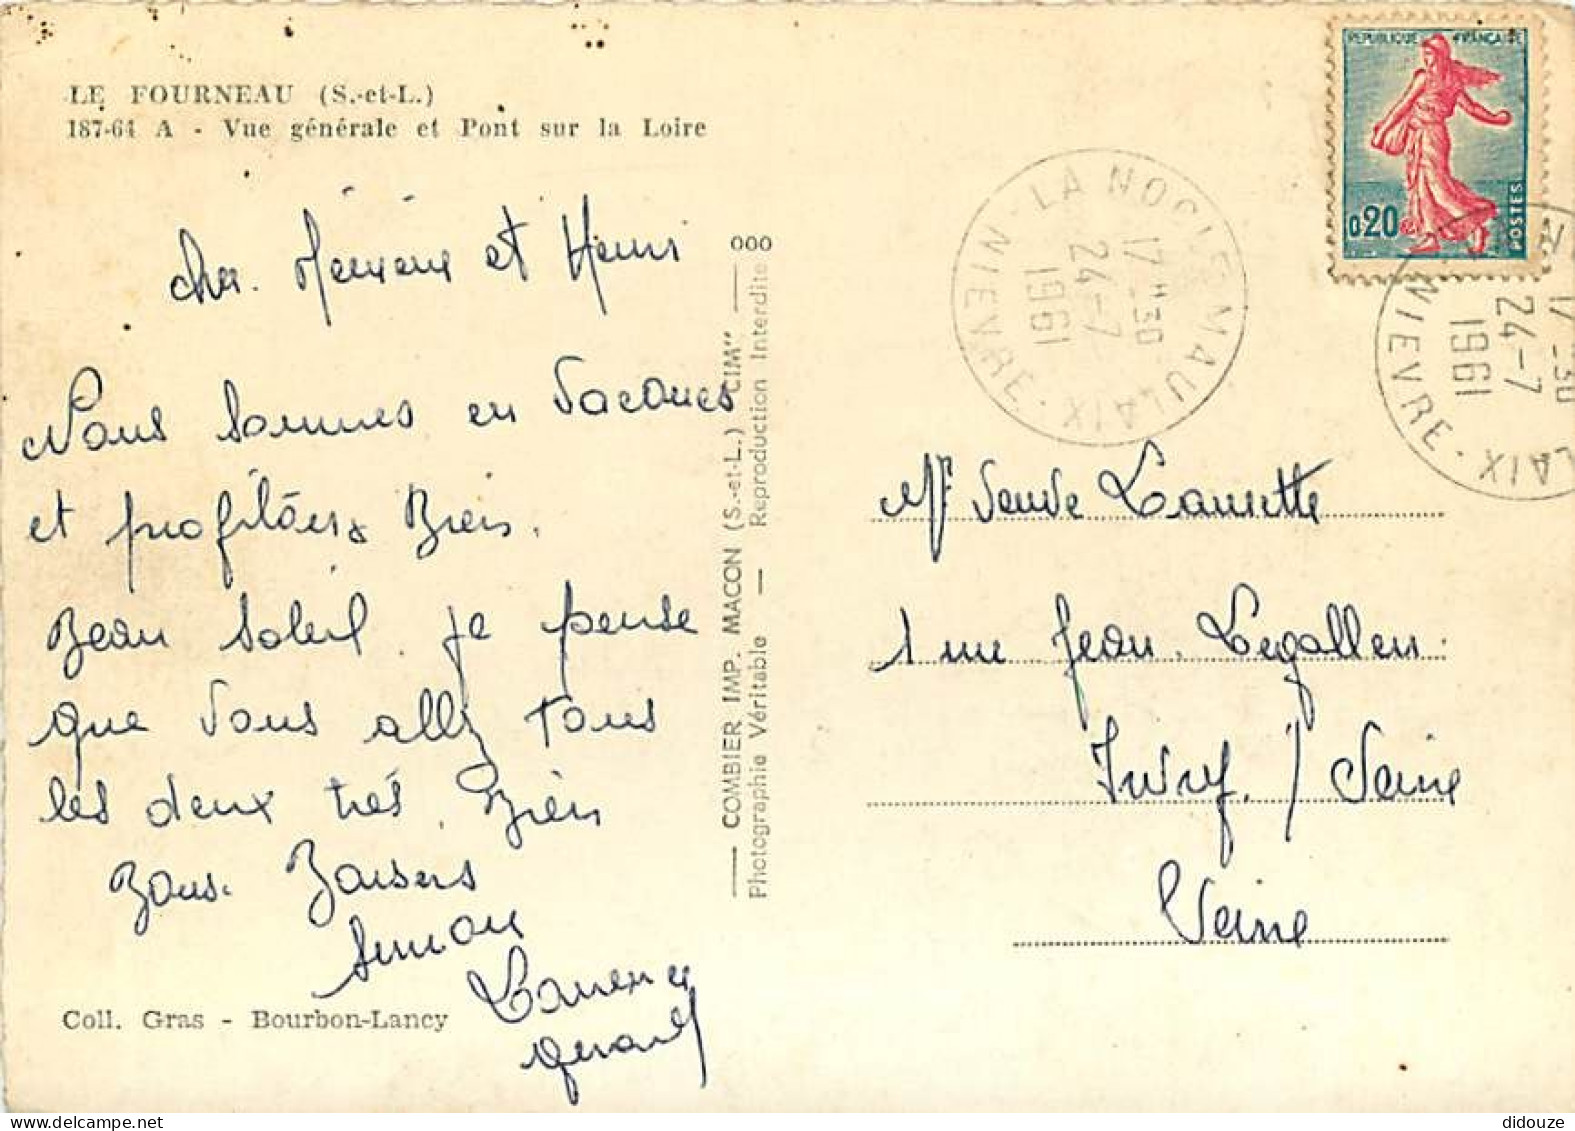 LE FOURNEAU (S.-et-L.)
187-64 A - Vue générale et Pont sur la Loire
cher. Mémère et Henri
Nous sommes en Vacances
et profitons Bien.
Beau Soleil. je pense
que Vous allez tous
les deux très. Bien
Bons. Baisers
Simon
Laurence
gerard
Coll. Gras - Bourbon-Lancy
000
COMBIER IMP. MACON (S.-et-L.) "CIM"
Photographie Véritable — Reproduction Interdite
REPUBLIQUE FRANÇAISE
0,20
POSTES
LA NOCLE-MAULAIX
NIEVRE
17 H 30
24-7
1961
LAIX
NIEVRE
17 H 30
24-7
1961
Veuve Laurette
1 rue Jean. Legallen.
Ivry. / Seine
Seine
didouze